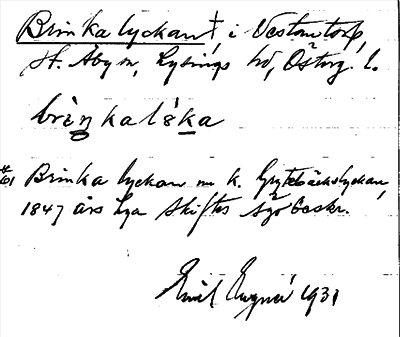 Brinkalyckan † i Vestantorp,
St. Åby sn, Lysings hd, Östерg. l.
brìŋkalʹɛka
Brinkalyckan nu k. Grytebäckslyckan,
1847 års Laga Skiftes Ägobeskr.
Emil 1931